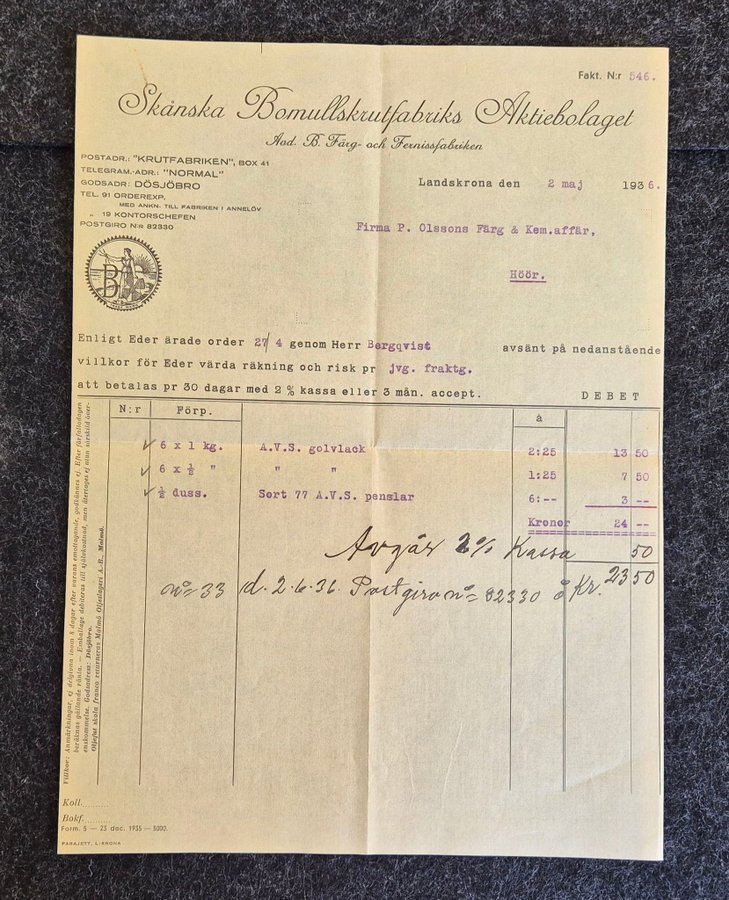 Fakt. N:r 546.
Skånska Bomullskrutfabriks Aktiebolaget
Avd. B. Färg- och Fernissfabriken
POSTADR.: "KRUTFABRIKEN", BOX 41
TELEGRAM.-ADR.: "NORMAL"
GODSADR: DÖSJÖBRO
TEL. 91 ORDEREXP.
MED ANKN. TILL FABRIKEN I ANNELÖV
„ 19 KONTORSCHEFEN
POSTGIRO N:R 82330
Landskrona den 2 maj 1936.
Firma P. Olssons Färg & Kem.affär,
Höör.
B
Enligt Eder ärade order 27/4 genom Herr Bergqvist avsänt på nedanstående
villkor för Eder värda räkning och risk pr jvg. fraktg.
att betalas pr 30 dagar med 2 % kassa eller 3 mån. accept.
DEBET
N:r Förp. à
6 x 1 kg. A.V.S. golvlack 2:25 13 50
6 x ½ " " " 1:25 7 50
½ duss. Sort 77 A.V.S. penslar 6:-- 3 --
Kronor 24 --
Avgår 2% Kassa 50
nº= 33 d. 2.6.36. Postgiro nº= 82330 å Kr. 23 50
Villkor: Anmärkningar, ej delgivna inom 8 dagar efter varans emottagande, godkännes ej. Efter förfallodagen
beräknas gällande ränta. — Emballage debiteras till självkostnad, men återtages ej utan särskild över-
enskommelse. Godsadress: Dösjöbro.
Oljefat skola franco returneras Malmö Oljeslageri A.-B., Malmö.
Koll.........
Bokf.........
Form. 5 — 23 dec. 1935 — 5000.
PARAJETT, L:KRONA